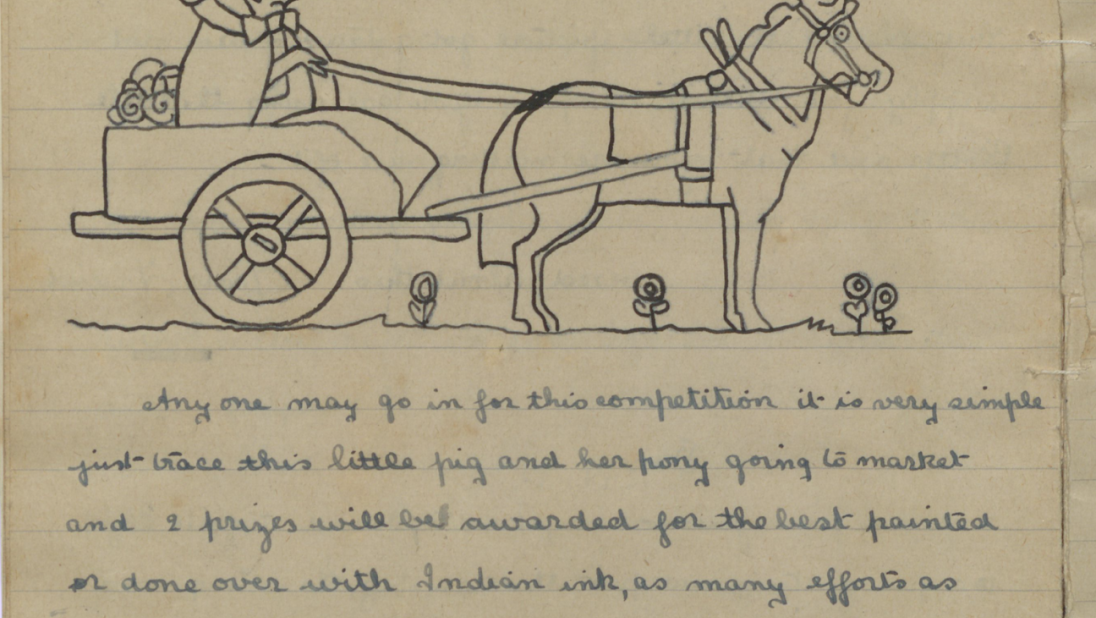 Any one may go in for this competition it is very simple
just trace this little pig and her pony going to market
and 2 prizes will be awarded for the best painted
or done over with Indian ink, as many efforts as